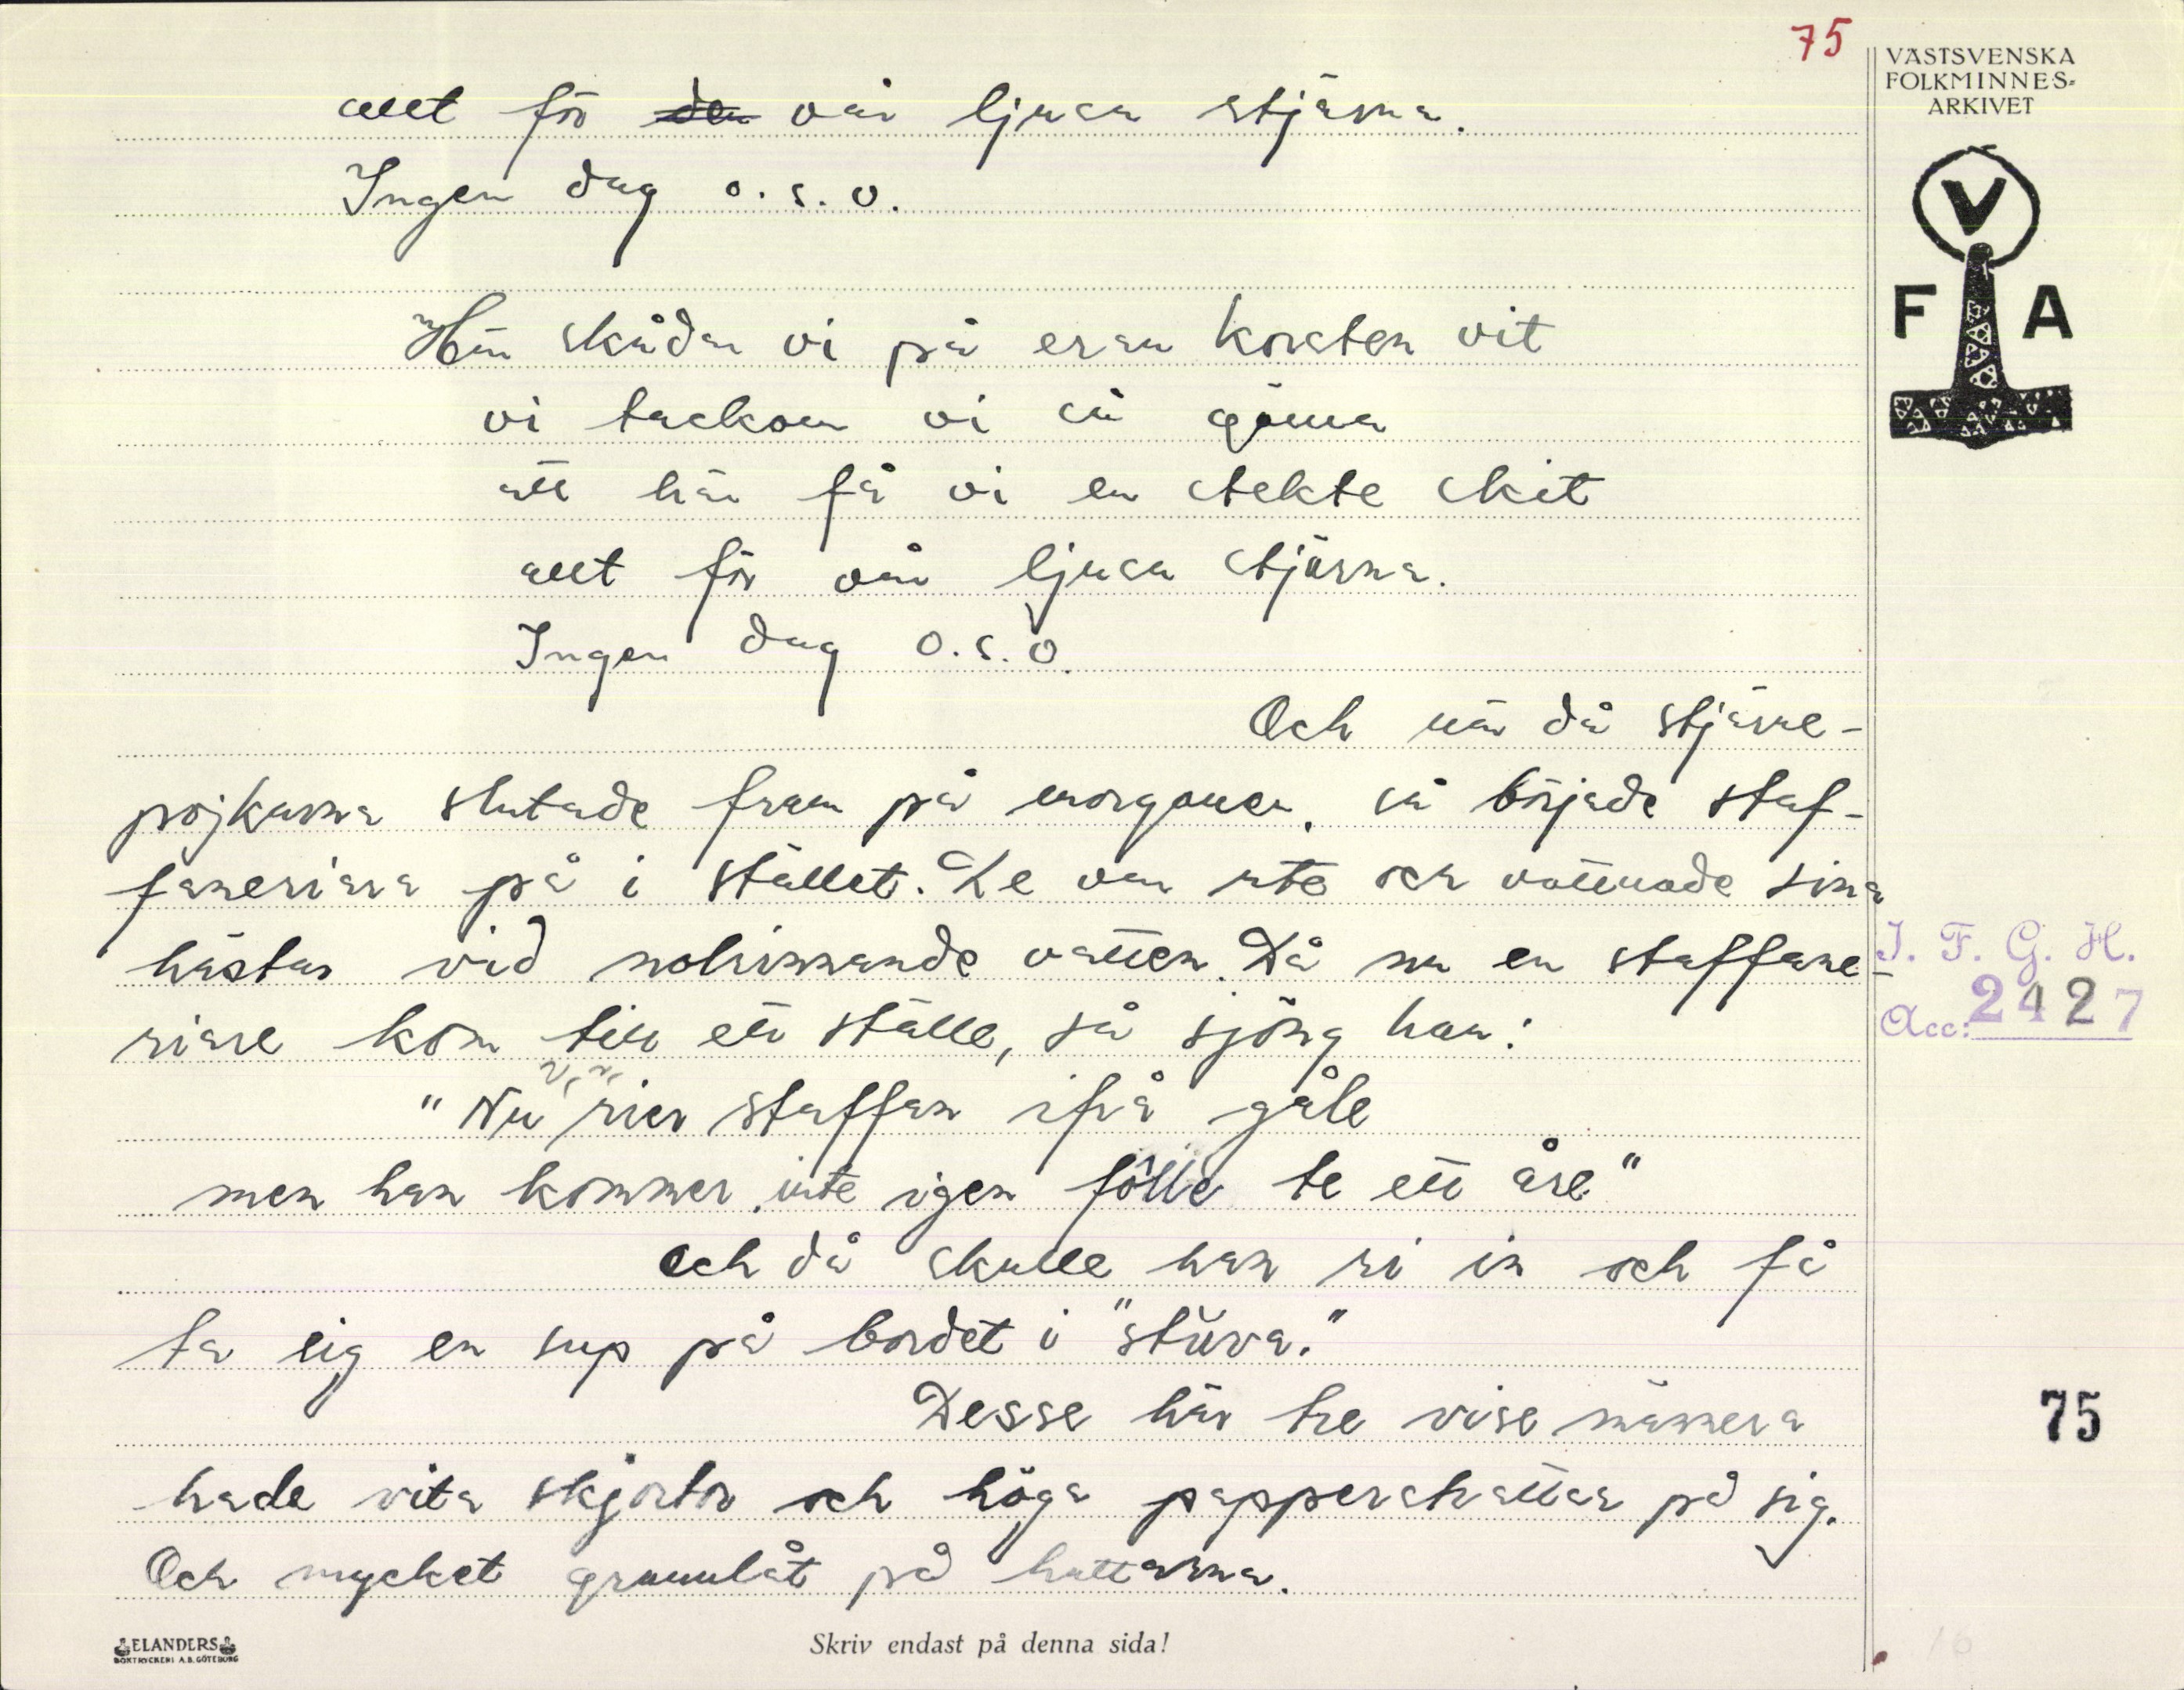 75
VÄSTSVENSKA
FOLKMINNES-
ARKIVET
V
F A
allt för den vår ljusa stjärna.
Ingen dag o.s.v.
Här skådar vi på eran korsten vit
vi tackom vi så gärna
att här få vi en stekte skit
allt för vår ljusa stjärna.
Ingen dag o.s.v.
Och när då stjärne-
pojkarna slutade fram på morgonen, så började staf-
faneriara på i stället. De var ute och vattnade sina
hästar vid nolrinnande vatten. Då nu en staffane-
riare kom till ett ställe, så sjöng han:
I. F. G. H.
Acc: 2427
"Nu rier staffan ifrå gåle
men han kommer inte igen fölle te ett åre"
och då skulle han ri in och få
ta sig en sup på bordet i "stuva."
Desse här tre vise männera
75
hade vita skjortor och höga papperschattar på sig.
Och mycket grannlåt på hattarna.
ELANDERS
BOKTRYCKERI A.B. GÖTEBORG
Skriv endast på denna sida!
16